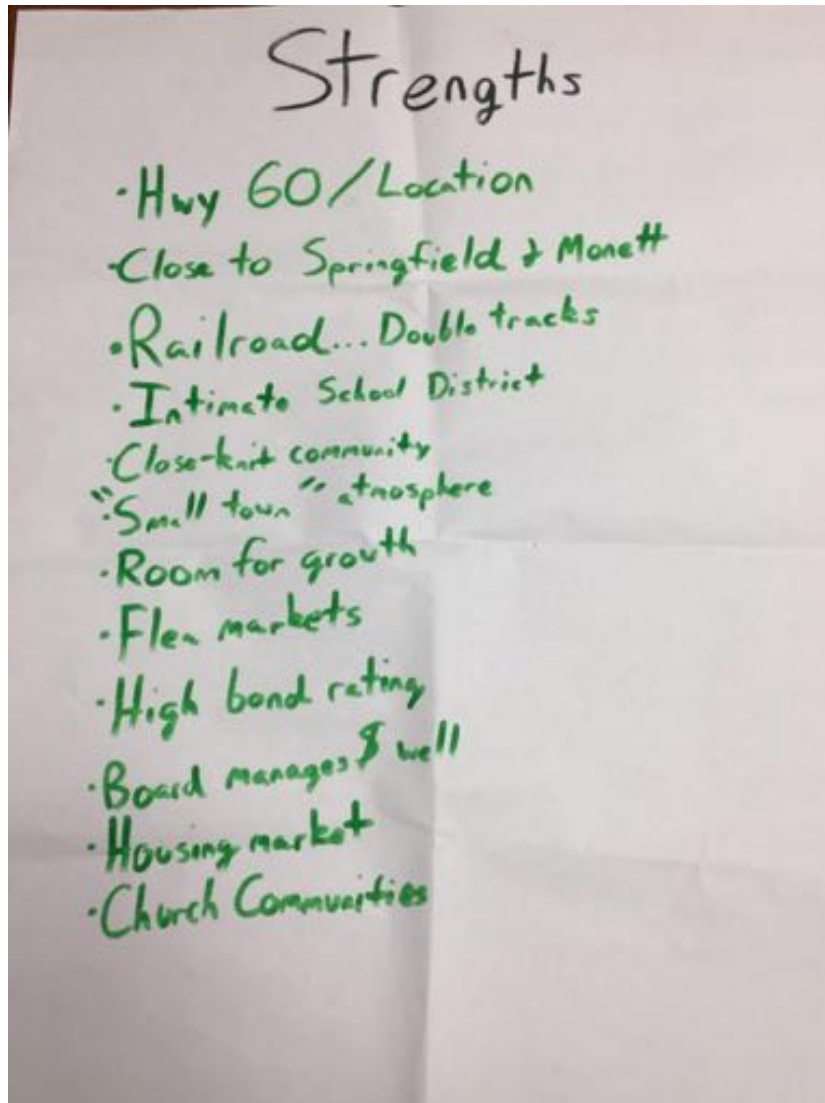 Strengths
·Hwy 60/Location
·Close to Springfield & Monett
·Railroad... Double tracks
·Intimate School District
·Close-knit community
"·Small town" atmosphere
·Room for growth
·Flea markets
·High bond rating
·Board manages $ well
·Housing market
·Church Communities